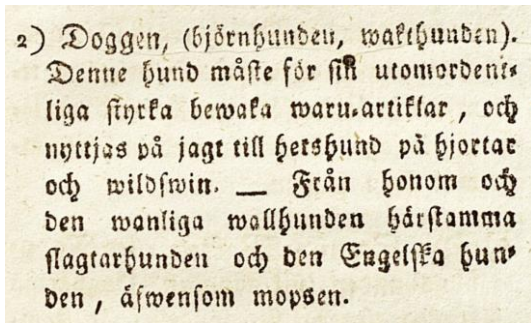 2) Doggen, (björnhunden, wakthunden).
Denne hund måste för sin utomordent-
liga styrka bewaka waru-artiklar, och
nyttjas på jagt till hetshund på hjortar
och wildswin. — Från honom och
den wanliga wallhunden härstamma
slagtarhunden och den Engelska hun-
den, äfwensom mopsen.